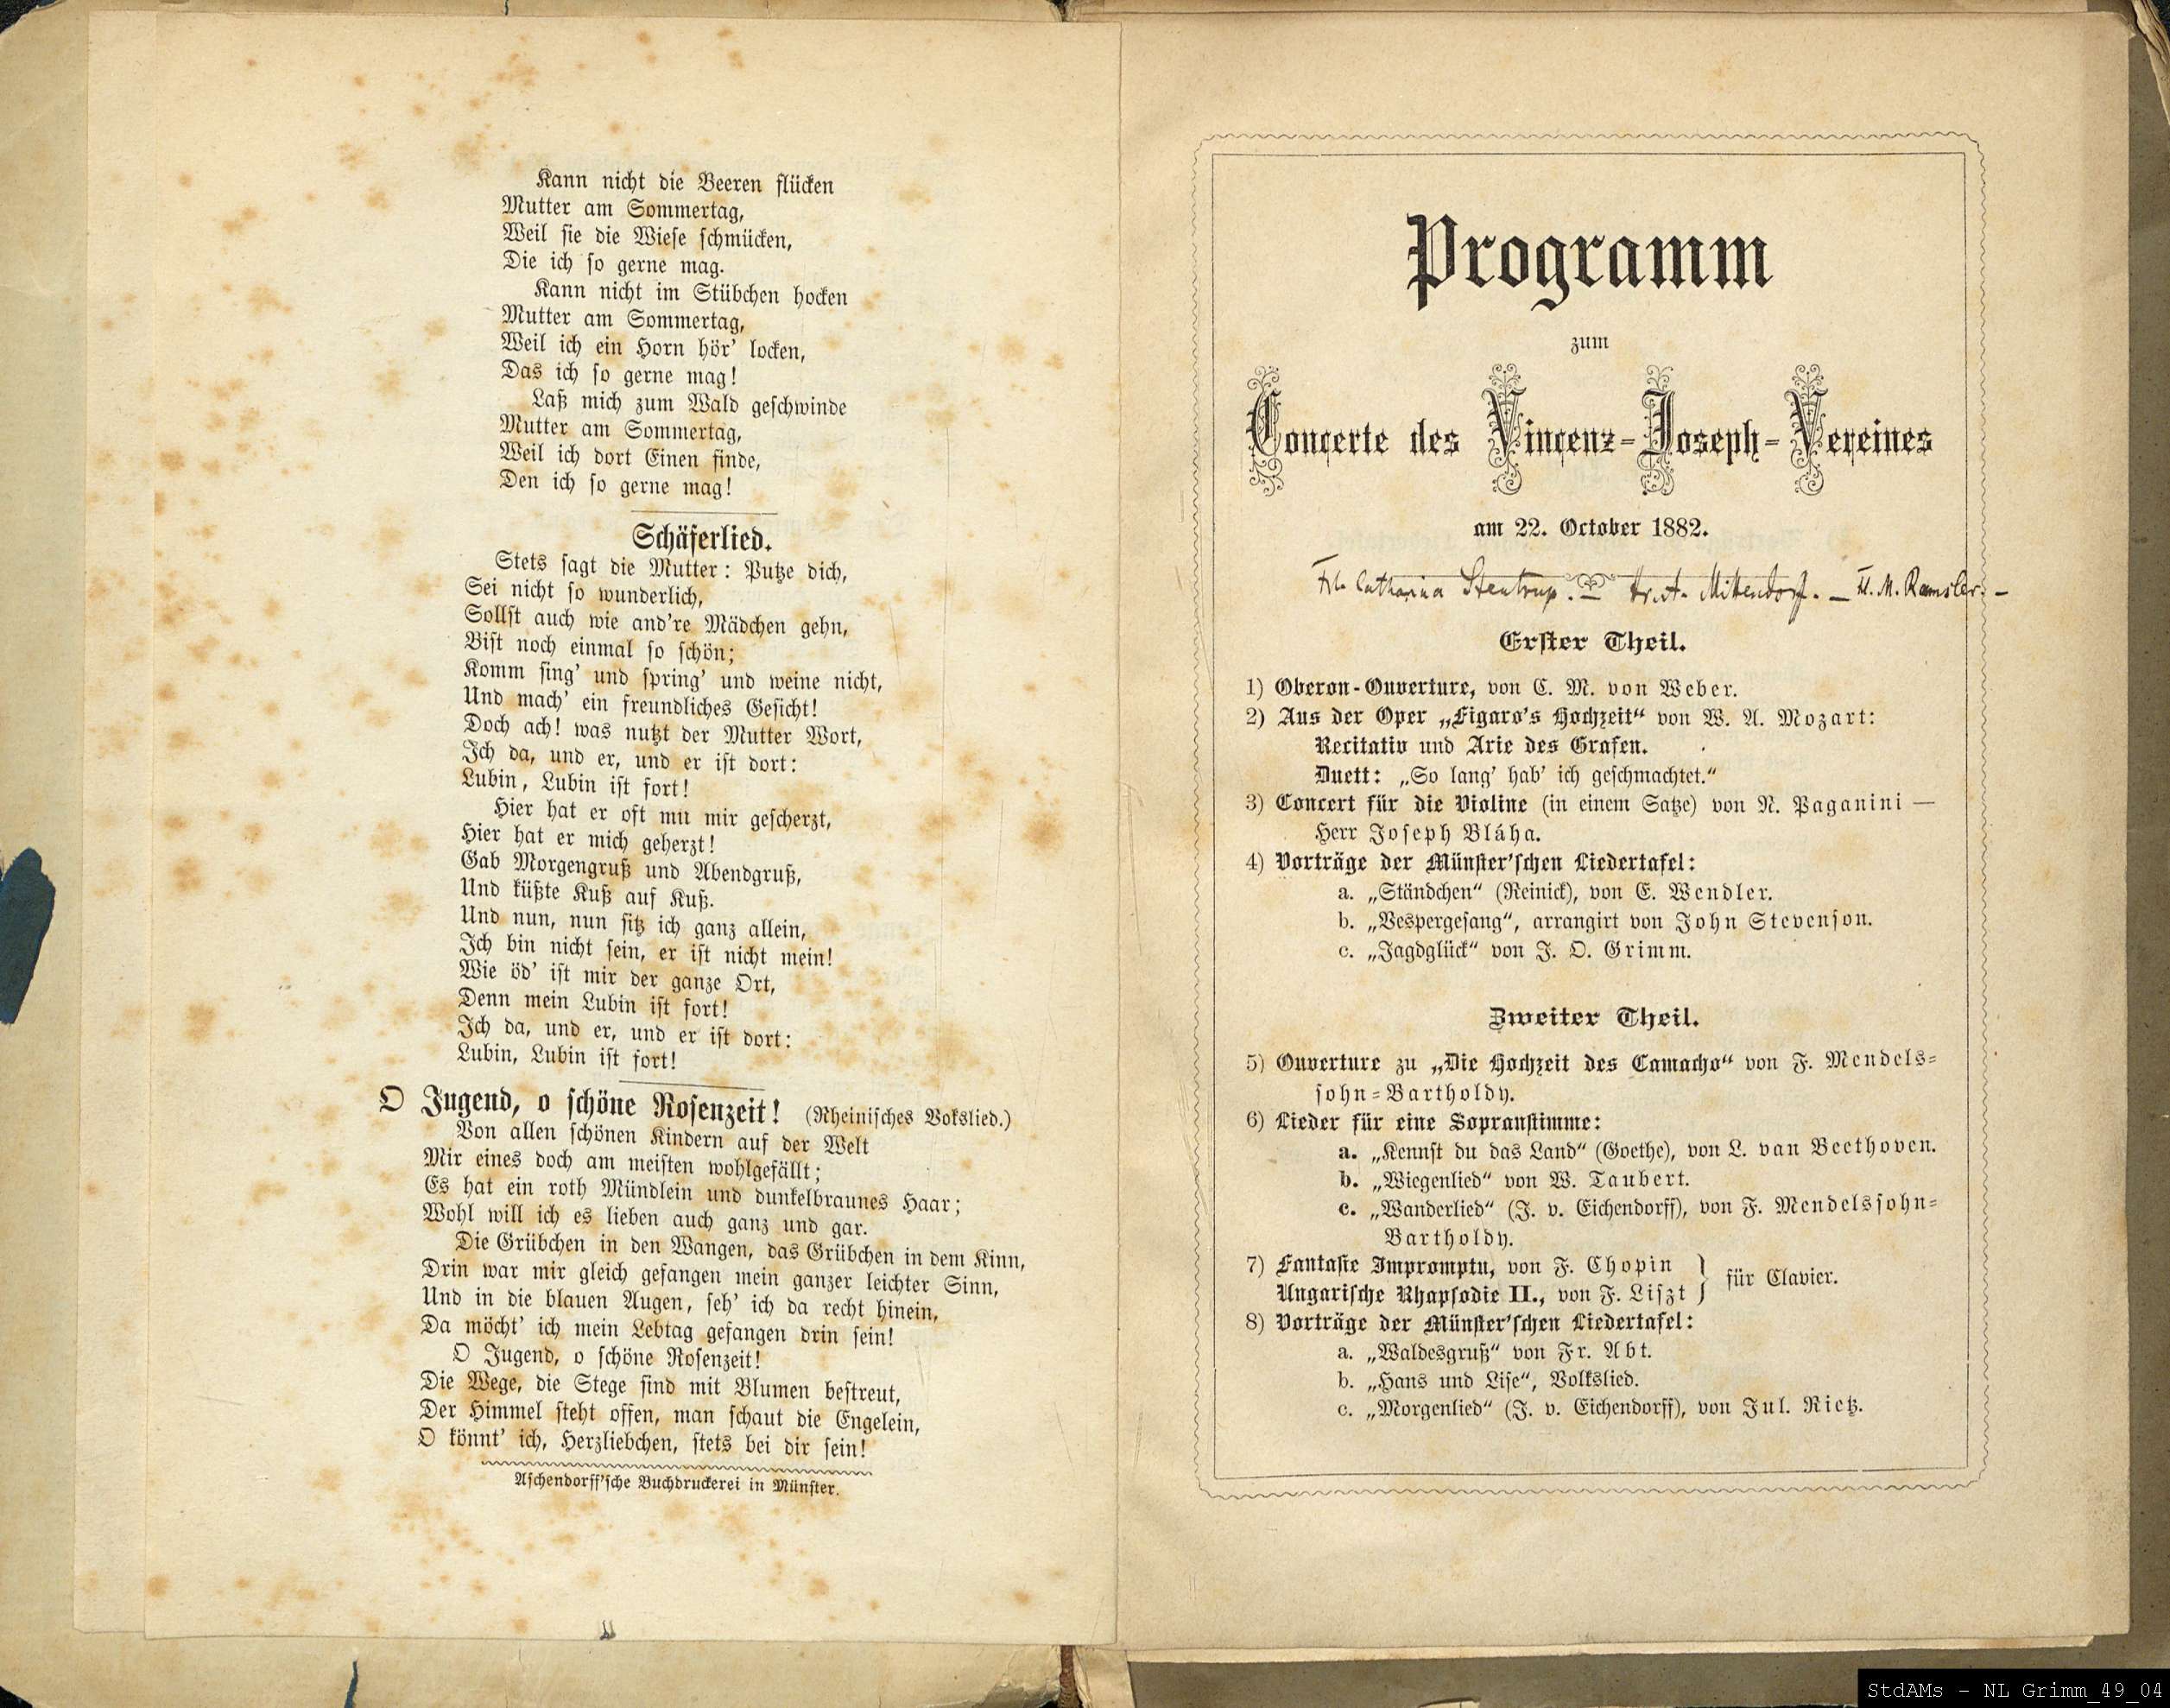 Kann nicht die Beeren flücken
Mutter am Sommertag,
Weil sie die Wiese schmücken,
Die ich so gerne mag.
Kann nicht im Stübchen hocken
Mutter am Sommertag,
Weil ich ein Horn hör' locken,
Das ich so gerne mag!
Laß mich zum Wald geschwinde
Mutter am Sommertag,
Weil ich dort Einen finde,
Den ich so gerne mag!
Schäferlied.
Stets sagt die Mutter: Putze dich,
Sei nicht so wunderlich,
Sollst auch wie and're Mädchen gehn,
Bist noch einmal so schön;
Komm sing' und spring' und weine nicht,
Und mach' ein freundliches Gesicht!
Doch ach! was nutzt der Mutter Wort,
Ich da, und er, und er ist dort:
Lubin, Lubin ist fort!
Hier hat er oft mit mir gescherzt,
Hier hat er mich geherzt!
Gab Morgengruß und Abendgruß,
Und küßte Kuß auf Kuß.
Und nun, nun sitz ich ganz allein,
Ich bin nicht sein, er ist nicht mein!
Wie öd' ist mir der ganze Ort,
Denn mein Lubin ist fort!
Ich da, und er, und er ist dort:
Lubin, Lubin ist fort!
O Jugend, o schöne Rosenzeit! (Rheinisches Vokslied.)
Von allen schönen Kindern auf der Welt
Mir eines doch am meisten wohlgefällt;
Es hat ein roth Mündlein und dunkelbraunes Haar;
Wohl will ich es lieben auch ganz und gar.
Die Grübchen in den Wangen, das Grübchen in dem Kinn,
Drin war mir gleich gefangen mein ganzer leichter Sinn,
Und in die blauen Augen, seh' ich da recht hinein,
Da möcht' ich mein Lebtag gefangen drin sein!
O Jugend, o schöne Rosenzeit!
Die Wege, die Stege sind mit Blumen bestreut,
Der Himmel steht offen, man schaut die Engelein,
O könnt' ich, Herzliebchen, stets bei dir sein!
Aschendorff'sche Buchdruckerei in Münster.
Programm
zum
Concerte des Vincenz-Joseph-Vereines
am 22. October 1882.
Frl. Catharina Stentrup. Mittendorf. — Fl. M. Ramsler. —
Erster Theil.
1) Oberon-Ouverture, von C. M. von Weber.
2) Aus der Oper „Figaro's Hochzeit“ von W. A. Mozart:
Recitativ und Arie des Grafen.
Duett: „So lang' hab' ich geschmachtet.“
3) Concert für die Violine (in einem Satze) von N. Paganini —
Herr Joseph Bláha.
4) Vorträge der Münster'schen Liedertafel:
a. „Ständchen“ (Reinick), von E. Wendler.
b. „Vespergesang“, arrangirt von John Stevenson.
c. „Jagdglück“ von J. O. Grimm.
Zweiter Theil.
5) Ouverture zu „Die Hochzeit des Camacho“ von F. Mendels-
sohn-Bartholdy.
6) Lieder für eine Sopranstimme:
a. „Kennst du das Land“ (Goethe), von L. van Beethoven.
b. „Wiegenlied“ von W. Taubert.
c. „Wanderlied“ (J. v. Eichendorff), von F. Mendelssohn-
Bartholdy.
7) Fantasie Impromptu, von F. Chopin
Ungarische Rhapsodie II., von F. Liszt } für Clavier.
8) Vorträge der Münster'schen Liedertafel:
a. „Waldesgruß“ von Fr. Abt.
b. „Hans und Lise“, Volkslied.
c. „Morgenlied“ (J. v. Eichendorff), von Jul. Rietz.
StdAMs - NL Grimm_49_04